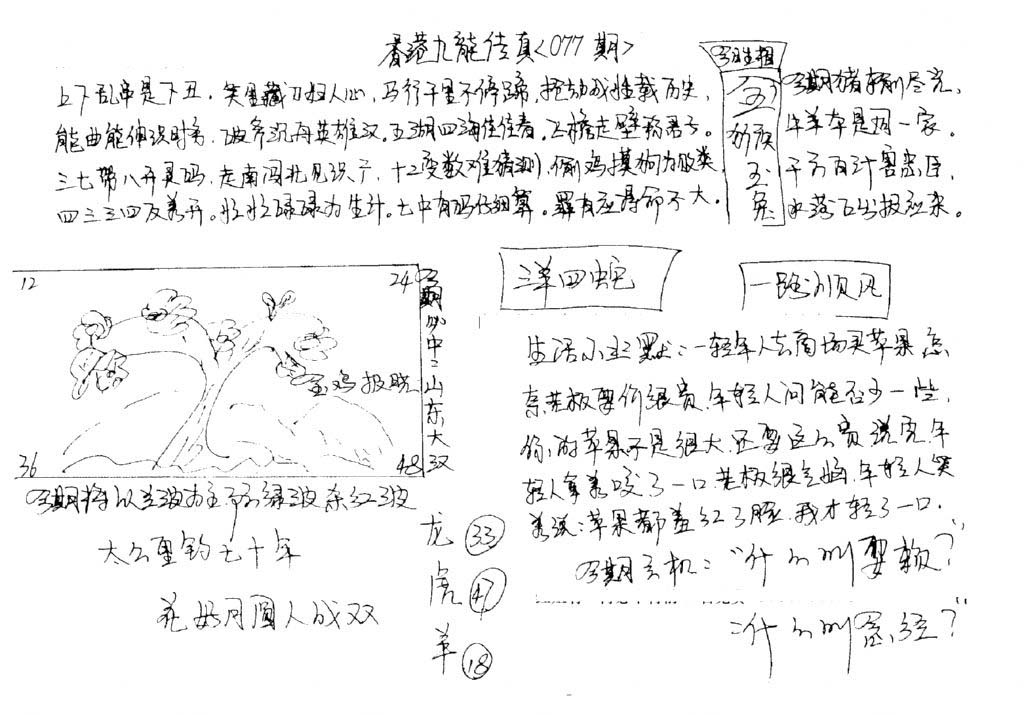 香港九龙传真<077期>
上下乱串是下丑,笑里藏刀妇人心,马行千里不停蹄,
能曲能伸识时务,破斧沉舟英雄汉,五湖四海佳佳看。飞檐走壁称君子。
三七带八开灵码,走南闯北见识广,十二变数难猜测,偷鸡摸狗为败类
四三三四反着开。忙忙碌碌为生计。七中有码仔细算。罪有应得命不大。
今期生相
五
猪
猴
玉
兔
今期猪
牛羊本是同一家。
千方百计害忠臣,
水落石出报应来。
12
24
36
48
金鸡报晓
今期必中:山东大汉
三羊四蛇
一路顺风
生活小幽默:一轻年人去商场买苹果,怎
奈老板要价很贵,年轻人问能否少一些,
你的苹果不是很大,还要这么贵,说完年
轻人拿着咬了一口,老板很气恼,年轻人笑
着说:苹果都羞红了脸,我才轻了一口.
今期玄机:"什么叫耍赖?"
:什么叫
今期将以兰波为主
绿波杀红波
太公里钓七十年
花好月圆人成双
龙 33
虎 47
羊 18